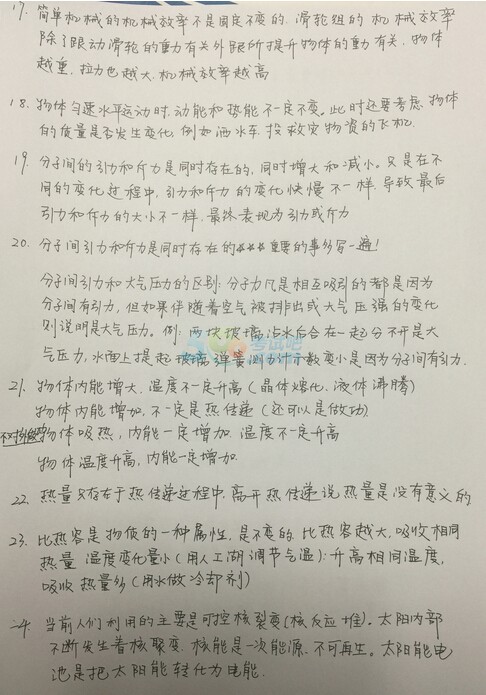 17. 简单机械的机械效率不是固定不变的, 滑轮组的机械效率
除了跟动滑轮的重力有关外跟所提升物体的重力有关, 物体
越重, 拉力也越大, 机械效率越高
18. 物体匀速水平运动时, 动能和势能不一定不变。此时还要考虑物体
的质量是否发生变化, 例如洒水车, 投救灾物资的飞机.
19. 分子间的引力和斥力是同时存在的, 同时增大和减小。只是在不
同的变化过程中, 引力和斥力的变化快慢不一样, 导致最后
引力和斥力的大小不一样, 最终表现为引力或斥力
20. 分子间引力和斥力是同时存在的*** 重要的事多写一遍!
分子间引力和大气压力的区别: 分子力凡是相互吸引的都是因为
分子间有引力, 但如果伴随着空气被排出或大气压强的变化
则说明是大气压力。例: 两块玻璃沾水后合在一起分不开是大
气压力, 水面上提起玻璃弹簧测力计示数变小是因为分子间有引力.
21. 物体内能增大, 温度不一定升高 (晶体熔化, 液体沸腾)
物体内能增加, 不一定是热传递 (还可以是做功)
物体吸热, 内能一定增加, 温度不一定升高
物体温度升高, 内能一定增加.
22. 热量只存在于热传递过程中, 离开热传递说热量是没有意义的
23. 比热容是物质的一种属性, 是不变的. 比热容越大, 吸收相同
热量 温度变化量小 (用人工湖调节气温); 升高相同温度,
吸收热量多 (用水做冷却剂)
24. 当前人们利用的主要是可控核裂变 (核反应堆)。太阳内部
不断发生着核聚变. 核能是一次能源, 不可再生。太阳能电
池是把太阳能转化为电能.